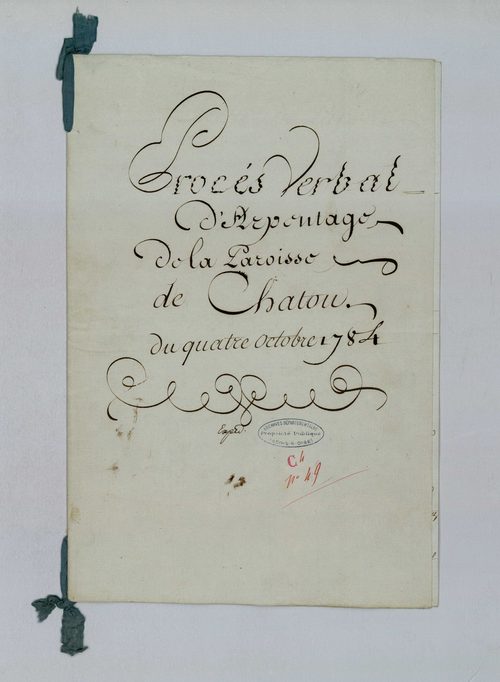 Procés Verbal
d'Arpentage
De la Paroisse
de Chatou.
du quatre Octobre 1784
Expéd.
ARCHIVES DÉPARTEMENTALES
Propriété Publique
C.4
n° 49